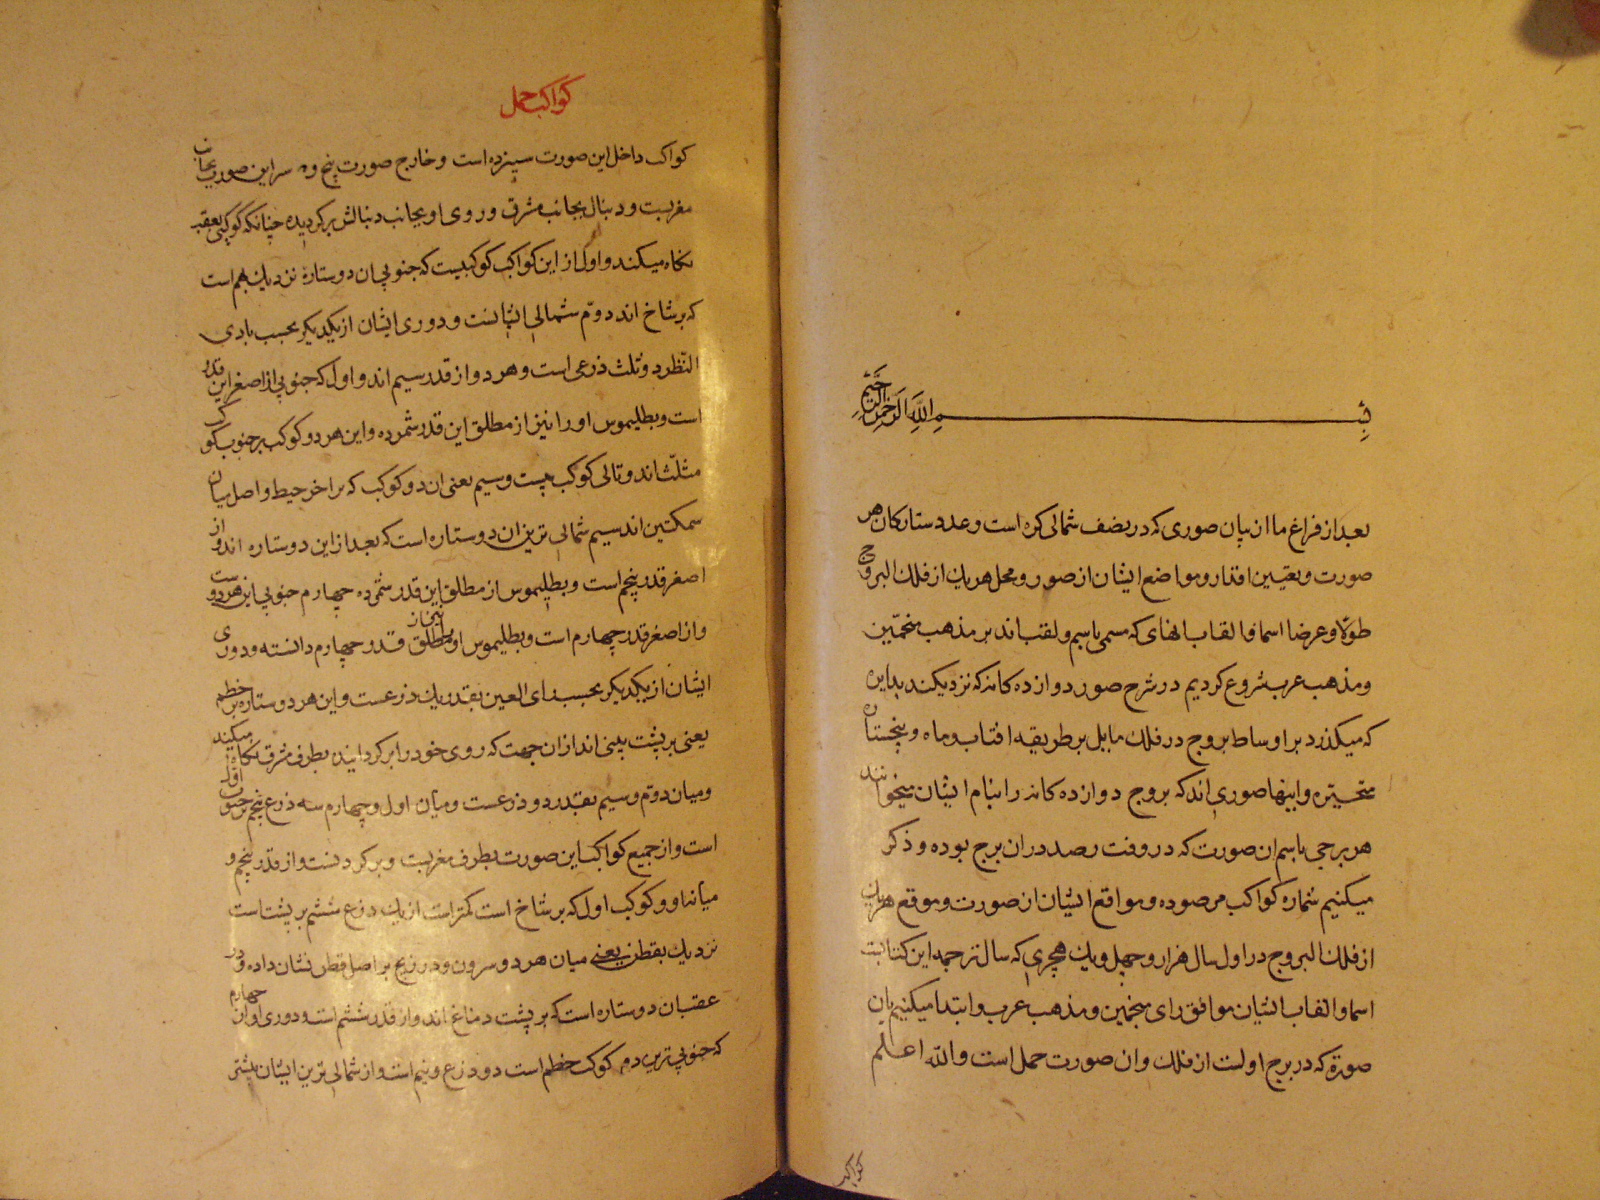 بسم الله الرحمن الرحیم
بعد از فراغ ما از بیان صوری که در نصف شمالی کره است و عدد ستارکان هر
صورت و تعیین اقدار و مواضع ایشان از صور و محل هر یک از فلک البروج
طولا و عرضا و اسما و القاب انهای که مسمی باسم و لقب اند بر مذهب منجمین
و مذهب عرب شروع کردیم در شرح صور دوازده کانه که نزدیکند بدایره
که میکذرد بر اوساط بروج در فلک مایل بر طریقه افتاب و ماه و پنج ستاره
متحیره و اینها صوری اند که بروج دوازده کانه را بنام ایشان میخوانند
هر برجی باسم ان صورت که در وقت رصد در ان برج بوده و ذکر
میکنیم شماره کواکب مرصوده و مواقع ایشان از ان صورت و موقع هر یک
از فلک البروج در اول سال هزار و چهل و یک هجری که سال ترجمه این کتابت
اسما و القاب ایشان موافق رای منجمین و مذهب عرب و ابتدا میکنیم بان
صورة که در برج اولست از فلک و ان صورت حمل است و الله اعلم
کواکب
کواکب حمل
کواکب داخل این صورت سیزده است و خارج صورت پنج و سر این صورت بجانب
مغربست و دنبال بجانب مشرق و روی او بجانب دنبالش برکردیده چنانکه کوئی بعقب
نکاه میکند و اول از این کواکب کوکبیست که جنوبی ان دو ستاره نزدیک بهم است
که بر شاخ اند دوم شمالی ایشانست و دوری ایشان از یکدیکر بحسب بادی
النظر دو ثلث ذرعی است و هر دو از قدر سیم اند و اول که جنوبی از اصغر این قدر
است و بطلیموس او را نیز از مطلق این قدر شمرده و این هر دو کوکب بر جنوب کوکب
مثلث اند و تالی کوکب بیست و سیم یعنی ان دو کوکب که بر اخر خیط و اصل میان
سمکتین اند سیم شمالی ترین ان دو ستاره است که بعد از این دو ستاره اند و از
اصغر قدر پنجم است و بطلیموس از مطلق این قدر شمرده چهارم جنوبی این هر دوست
و از اصغر قدر چهارم است و بطلیموس او را مطلق قدر چهارم دانسته و دوری
ایشان از یکدیکر بحسب رای العین بقدر یک ذرعست و این هر دو ستاره بر خطم
یعنی بر پشت بینی اند از ان جهت که روی خود را برکردانیده بطرف مشرق نکاه میکند
و میان دوم و سیم بقدر دو ذرعست و میان اول و چهارم سه ذرع پنجم بر جنوب اول
است و از جمیع کواکب این صورت بطرف مغربست و بر کردنست و از قدر پنجم و
میانه او و کوکب اول که بر شاخ است کمتر است از یک ذرع ششم بر پشت است
نزدیک بقطن یعنی میان هر دو سرون و در زیج بر اصل قطن نشان داده و در
عقب ان دو ستاره است که بر پشت دماغ اند و از قدر ششم است و دوری او از چهارم
که جنوبی ترین دو کوکب خطم است دو ذرع و نیم است و از شمالی ترین ایشان بیشتر